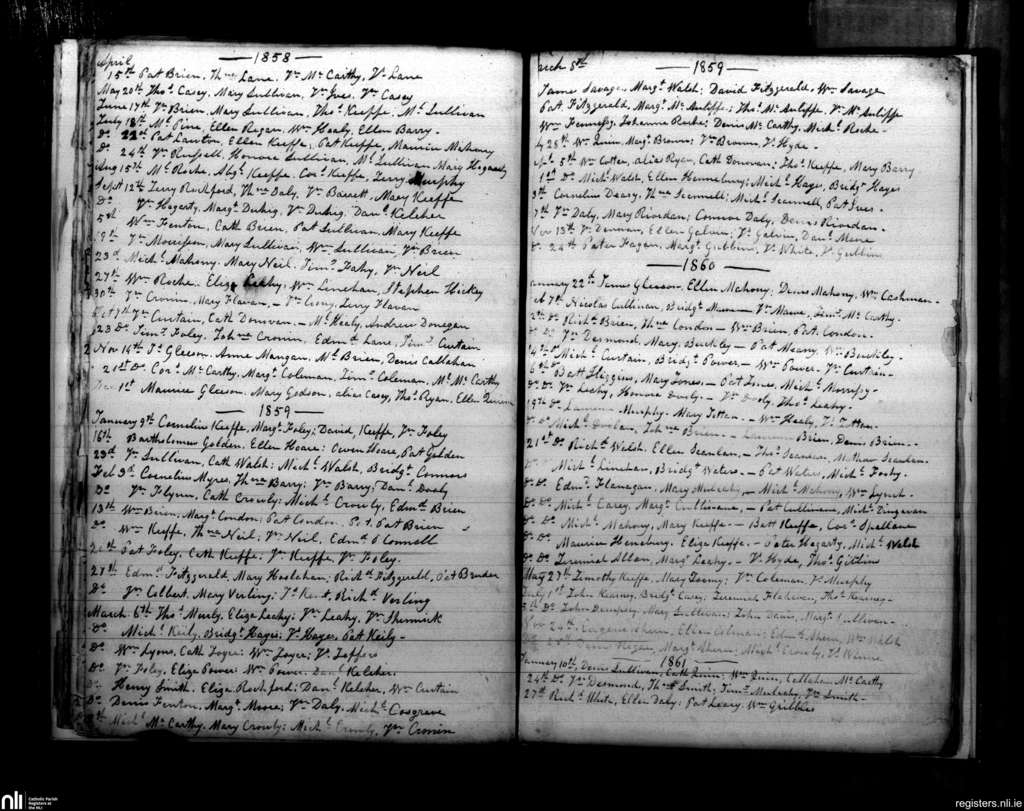 1858
April
15th Pat Brien, Thne Lane. Jn McCarthy, Jn Lane
May 20th Thos Casey, Mary Sullivan, Jn Ives. Jn Casey
June 17th Jn Brien, Mary Sullivan, Thos Keeffe, Ml Sullivan
July 18th Ml Pine, Ellen Regan, Wm Healy, Ellen Barry.
Do 22nd Pat Lawton, Ellen Keeffe, Pat Keeffe, Maurice Mahony
Do 24th Jn Russell, Honora Sullivan, Ml Sullivan, Mary Hogarty
Aug 15th Ml Roche, Abgl Keeffe. Cors Keeffe, Terry Murphy
Sept 12th Terry Rochford, Thne Daly, Jn Barrett, Mary Keeffe
Do Jn Hagarty, Margt Duhig, Jn Duhig, Danl Keleher
5th Wm Fenton, Cath Brien, Pat Sullivan, Mary Keeffe
19th Jn Morrisson, Mary Sullivan, Wm Sullivan, Jn Brien
23d Michl Mahony, Mary Neil, Timy Fahy, Jn Neil
27th Wm Roche, Eliza Leahy, Wm Linehan, Stephen Hickey
30th Jn Cronin, Mary Flavan, - Jn Crony, Terry Flavan
Oct 7th Jn Curtain, Cath Donovan, - Ml Healy, Andrew Donegan
23 Do Timy Foley, Johna Cronin, Edmd Lane, Timy Curtain
Nov 14th Js Gleeson, Anne Mangan, Ml Brien, Denis Callahan
21st Do Cors McCarthy, Margt Coleman, Timy Coleman, Ml McCarthy
1st Maurice Gleeson, Mary Godson, alias Casey, Thos Ryan, Ellen
1859
January 9th Cornelius Keeffe, Margt Foley; David Keeffe, Jn Foley
16th Bartholomew Golden, Ellen Hoare; Owen Hoare, Pat Golden
23d Jn Sullivan, Cath Walsh; Michl Walsh, Bridgt Connors
Feb 3d Cornelius Myres, Thne Barry; Jn Barry, Danl Dooly
Do Jn Flynn, Cath Crowly; Michl Crowly, Edmd Brien
13th Wm Brien, Margt Condon; Pat Condon, Pat Brien
Do Wm Keeffe, Thne Neil; Jn Neil, Edmd O'Connell
20th Pat Foley, Cath Keeffe; Jn Keeffe, Jn Foley.
27th Edmd Fitzgerald, Mary Hoolahan; Richd Fitzgerald, Pat
Do Jn Colbert, Mary Verling; Js Kent, Richd Verling
March 6th Thos Eliza Leahy; Jn Leahy, Jn
Do Michl Keily, Bridgt Hayes; Jn Hayes, Pat Keily-
Do Wm Lyons, Cath Joyce; Wm Joyce; Js
Do Jn Foley, Eliza Power; Wm Power, Danl Keleher
Do Henry Smith, Eliza Rochford; Danl Keleher, Wm Curtain
Do Denis Fenton, Margt Moore; Jn Daly, Michl Cosgrave
Michl McCarthy, Mary Crowly; Michl Crowly, Jn Cronin
1859
rch 5th
James Savage, Margt Walsh; David Fitzgerald, Wm Savage
Pat Fitzgerald, Margt McAuliffe; Thos McAuliffe, Jn McAuliffe
Wm Fennessy, Johanna Roche; Denis McCarthy, Michl Roche-
28th Wm Quin, Margt Browne; Jn Browne, Js Hyde-
5th Wm Cotter, alias Ryan, Cath Donovan; Thos Keeffe, Mary Barry
1st Do Michl Walsh, Ellen Hennebury; Michl Hayes, Bridgt Hayes
3th Cornelius Deasy, Thne Scannell; Michl Scannell, Pat Ives-
7th Jn Daly, Mary Riordan; Connor Daly, Denis Riordan-
Nov 13th Jn Dennan, Ellen Galvin; Js Galvin, Danl Mene
Do 24th Peter Fagan, Margt Gubbins; Js White, Js Gubbin
1860
anuary 22nd James Gleeson, Ellen Mahony; Denis Mahony, Wm Cashman-
7th Nicolas Cullinan, Bridgt Mane- Jn Mane, Timy McCarthy.
2th Do Richd Brien, Thne Condon- Wm Brien, Pat Condon.
Do Do Jn Desmond, Mary Buckley- Pat Meany, Wm Buckley-
14th Do Michl Curtain, Bridgt Power,- Wm Power, Jn Curtain-
Do Batt Higgins, Mary Jones,- Pat Jones, Michl
Do Do Jn Leahy, Honora Dooly,- Jn Dooly, Thos Leahy-
19th Do Laurence Murphy, Mary Totten- Wm Healy, Js Totten-
Do Do Michl Doolan, Johna Brien,- Laurence Brien, Denis Brien-
21st Do Richd Walsh, Ellen Scanlan,- Thos Scanlan, Mathew Scanlan.
Michl Linehan, Bridgt Waters- Pat Waters, Michl
Do Do Edmd Flanagan, Mary Mulcahy,- Michl Mahony, Wm Lynch-
Do Do Michl Carey, Margt Cullinane,- Pat Cullinane, Michl Dingavan
Do Do Michl Mahony, Mary Keeffe- Batt Keeffe, Cors Spellane
Do Do Maurice Hennebury, Eliza Keeffe.- Peter Hagarty, Michl Walsh
Do Do Jeremiah Allan, Margt Leahy.- Js Hyde, Thos
May 27th Timothy Keeffe, Mary Toomy; Jn Coleman, Js Murphy
July 1st John Kearny, Bridgt Casey; Jeremiah Flahivan, Thos Kearney-
5th Do John Dempsey, Mary Sullivan; John Davis, Margt Sullivan-
Nov 24th Eugene Ahern, Ellen Colman; Edmd Ahern, Wm Walsh
Regan, Margt Ahern; Michl Crowly, Js
1861
January 10th Denis Sullivan, Cath Quinn; Wm Quinn, Callahan McCarthy
24th Do Jn Desmond, Thne Smith, Timy Mulcahy, Jn Smith-
27th Richd White, Ellen Daly; Pat Leary, Wm Gribbles
nli
Catholic Parish
Registers at
the NLI
registers.nli.ie